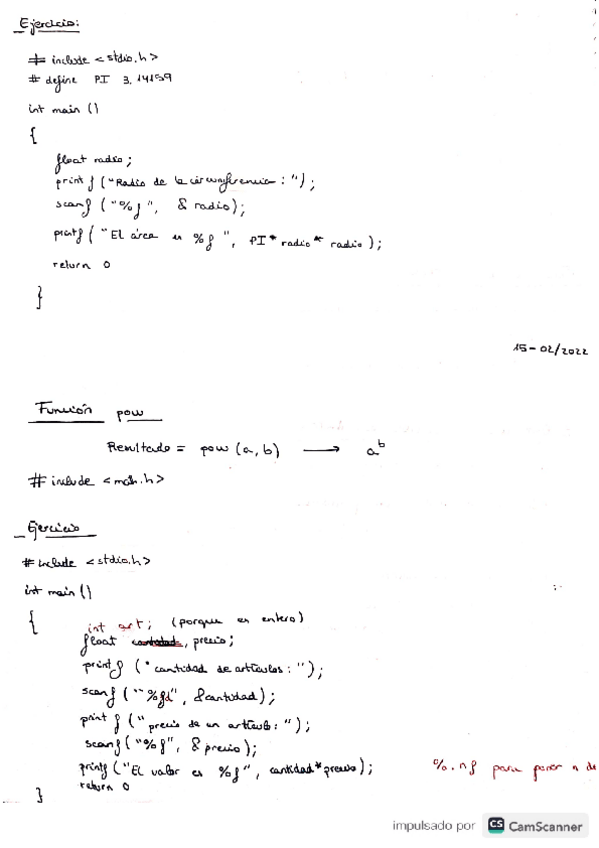 Ejercicio:
# include <stdio.h>
# define PI 3.14159
int main ()
{
float radio;
printf ("Radio de la circunferencia: ");
scanf ("%f", & radio);
printf ("El área es %f ", PI* radio* radio);
return 0
}
15-02/2022
Función pow
Resultado = pow (a, b) → a^b
# include <math.h>
Ejercicio
# include <stdio.h>
int main ()
{
int art; (porque es entero)
float cantidad, precio;
printf ("cantidad de artículos: ");
scanf ("%d", &cantidad);
printf ("precio de un artículo: ");
scanf ("%f", & precio);
printf ("El valor es %f", cantidad*precio); %.nf para poner n de
return 0
}
impulsado por CS CamScanner